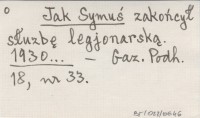 o
Jak Symuś zakończył
służbę legjonarską.
1930... — Gaz. Podh.
18, nr 33.